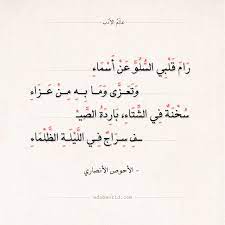 عالم الأدب
رَامَ قَلْبِي السُّلُوَّ عَنْ أَسْمَاءِ
وَتَعَزَّى وَمَا بِهِ مِنْ عَزَاءِ
سُخْنَةٌ فِي الشِّتَاءِ، بَارِدَةُ الصَّيْـ
ـفِ سِرَاجٌ فِي اللَّيْلَةِ الظَّلْمَاءِ
- الأحوص الأنصاري
adabworld.com